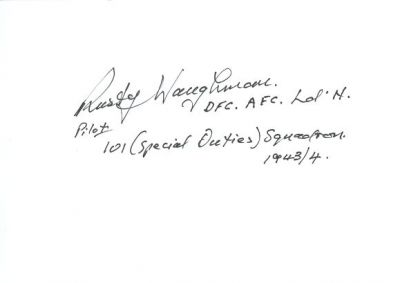 Rusty Waughman.
DFC. AFC. Ld'H.
Pilot
101 (Special Duties) Squadron.
1943/4.